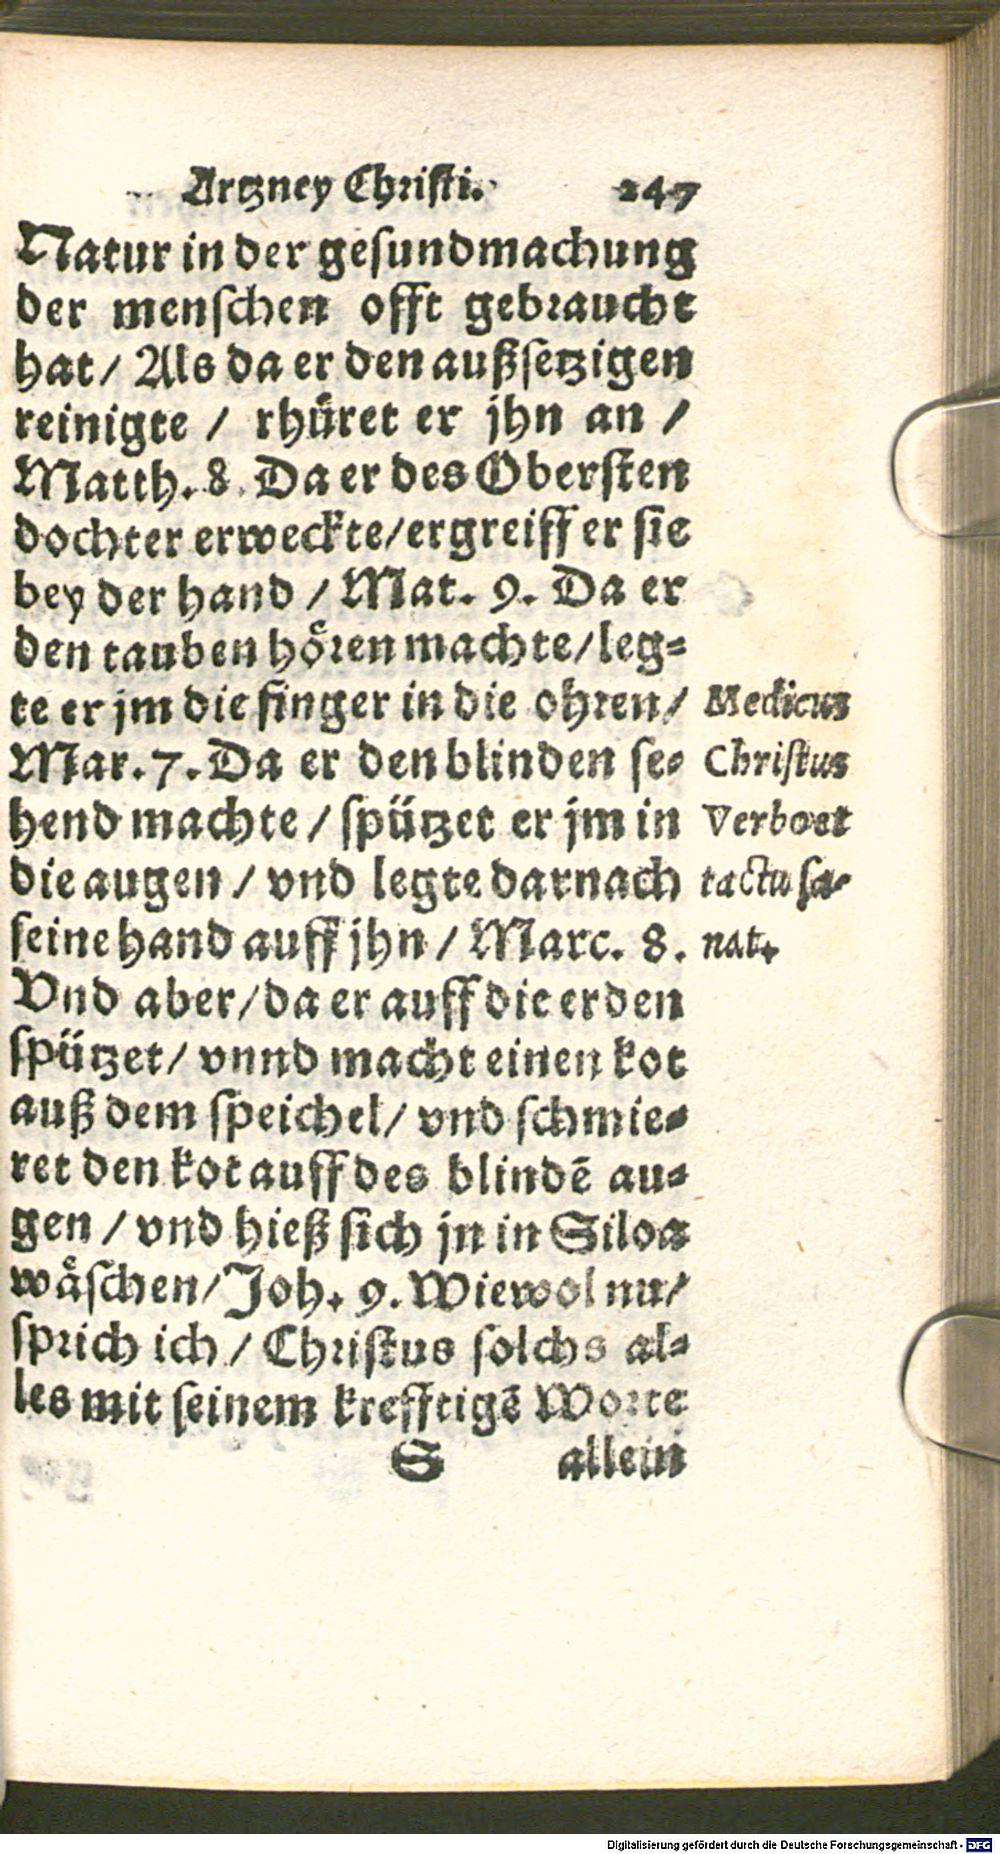 Artzney Christi. 247
Natur in der gesundmachung
der menschen offt gebraucht
hat/ Als da er den außsetzigen
reinigte / rhüret er jhn an /
Matth. 8. Da er des Obersten
dochter erweckte/ergreiff er sie
bey der hand / Mat. 9. Da er
den tauben hören machte/leg-
te er jm die finger in die ohren/
Mar. 7. Da er den blinden se-
hend machte / spützet er jm in
die augen / vnd legte darnach
seine hand auff jhn / Marc. 8.
Vnd aber/da er auff die erden
spützet/ vnnd macht einen kot
auß dem speichel/ vnd schmie-
ret den kot auff des blindē au-
gen / vnd hieß sich jn in Siloa
wäschen/Joh. 9. Wiewol nu/
sprich ich / Christus solchs al-
les mit seinem krefftigē Worte
S allein
Medicus
Christus
Verbo et
tactu sa-
nat.
Digitalisierung gefördert durch die Deutsche Forschungsgemeinschaft - DFG